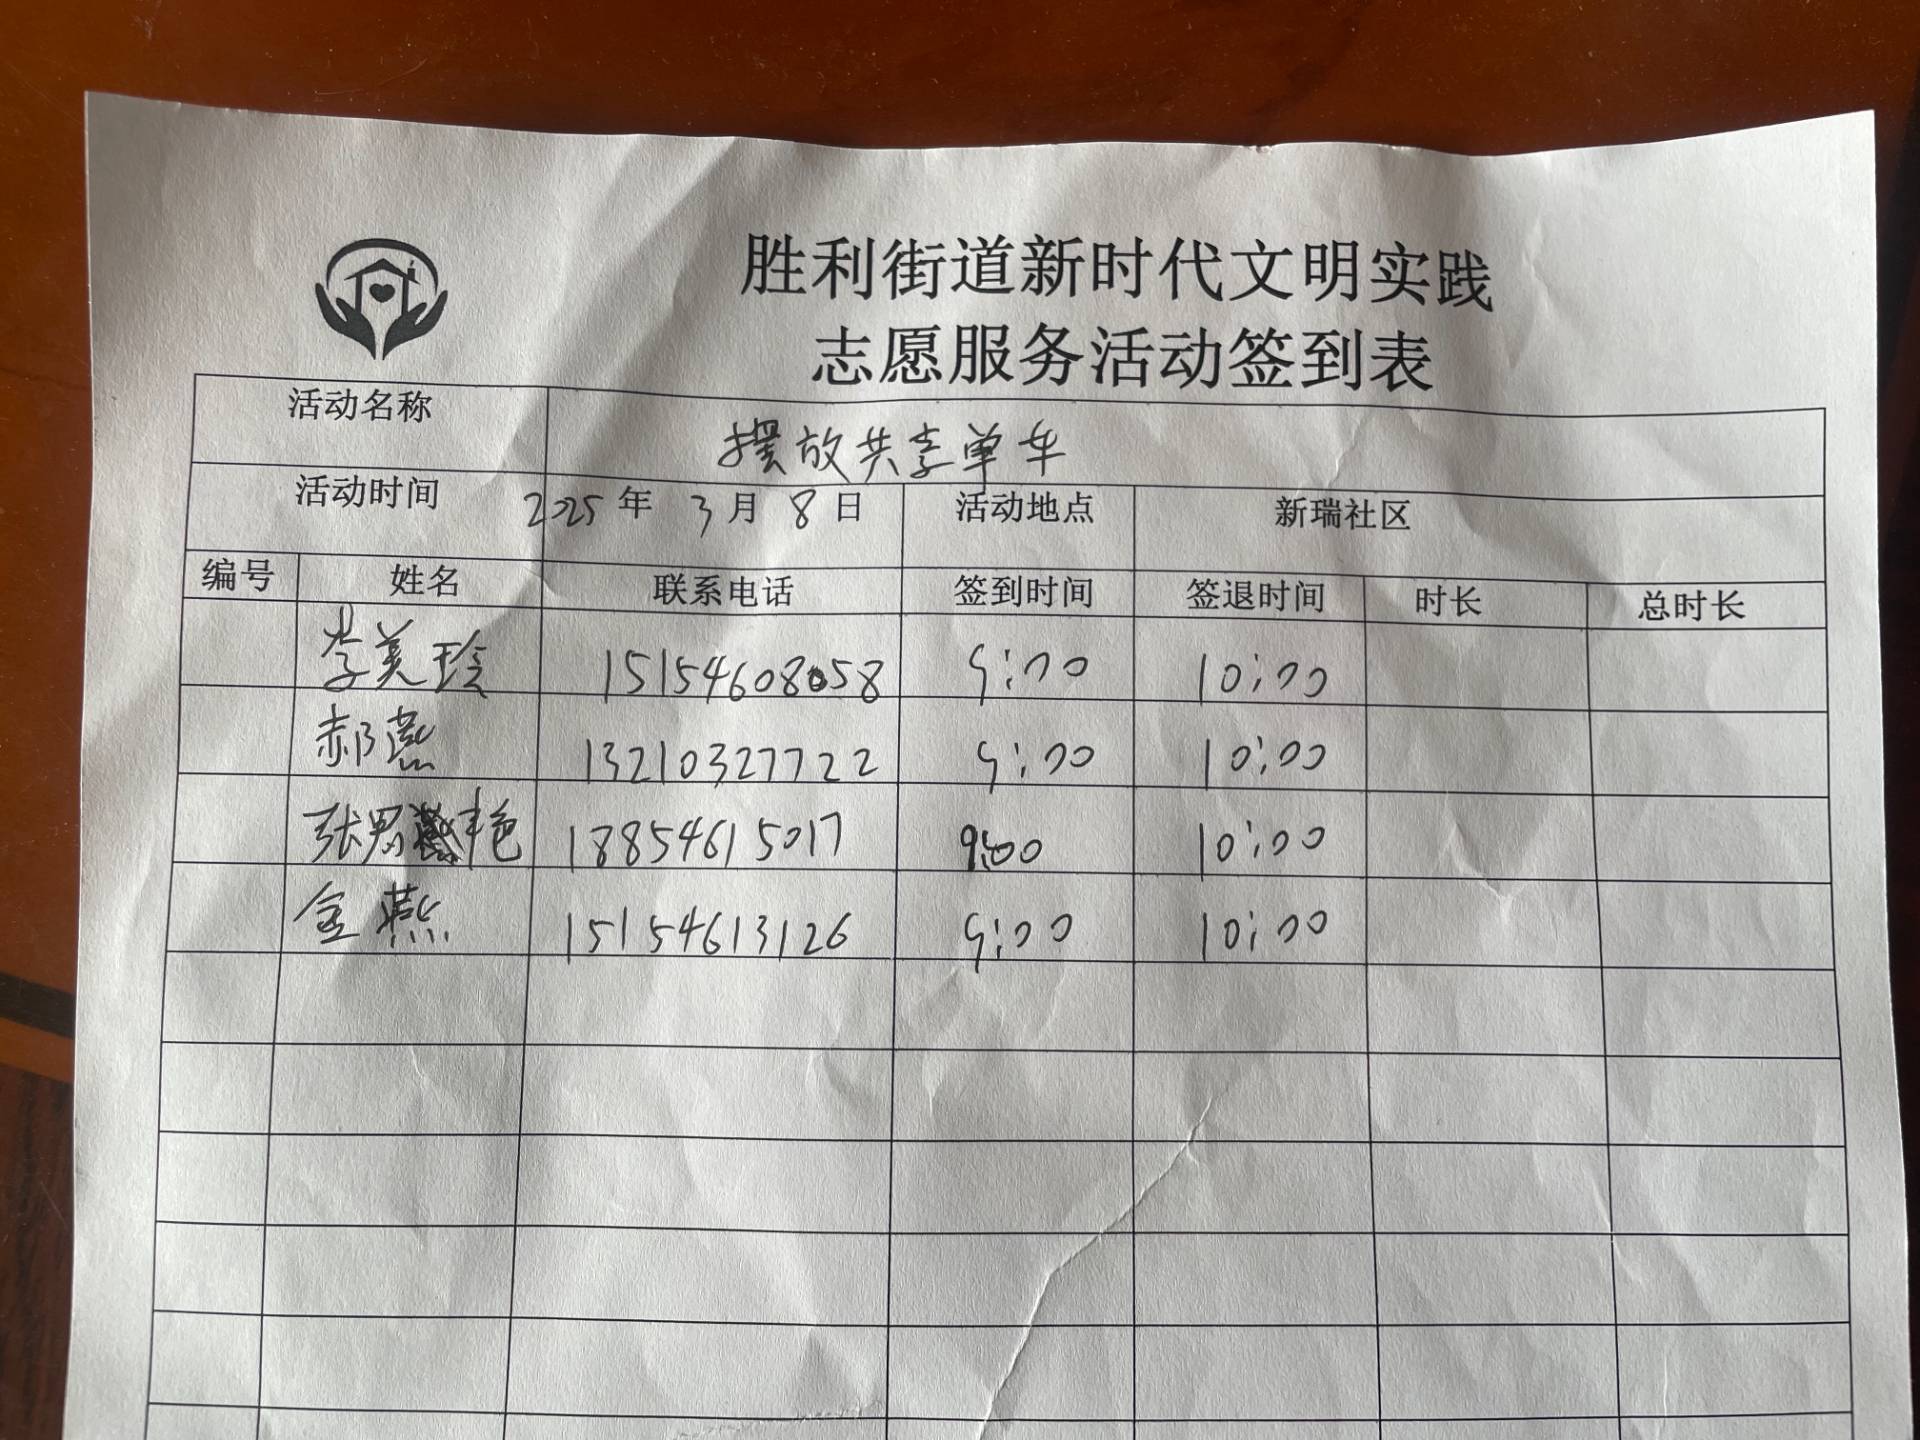 胜利街道新时代文明实践
志愿服务活动签到表
活动名称 摆放共享单车
活动时间 2025年 3月 8日 活动地点 新瑞社区
编号 姓名 联系电话 签到时间 签退时间 时长 总时长
李美玲 15154608058 9:00 10:00
郝燕 13210327722 9:00 10:00
张男艳 18854615017 9:00 10:00
金燕 15154613126 9:00 10:00